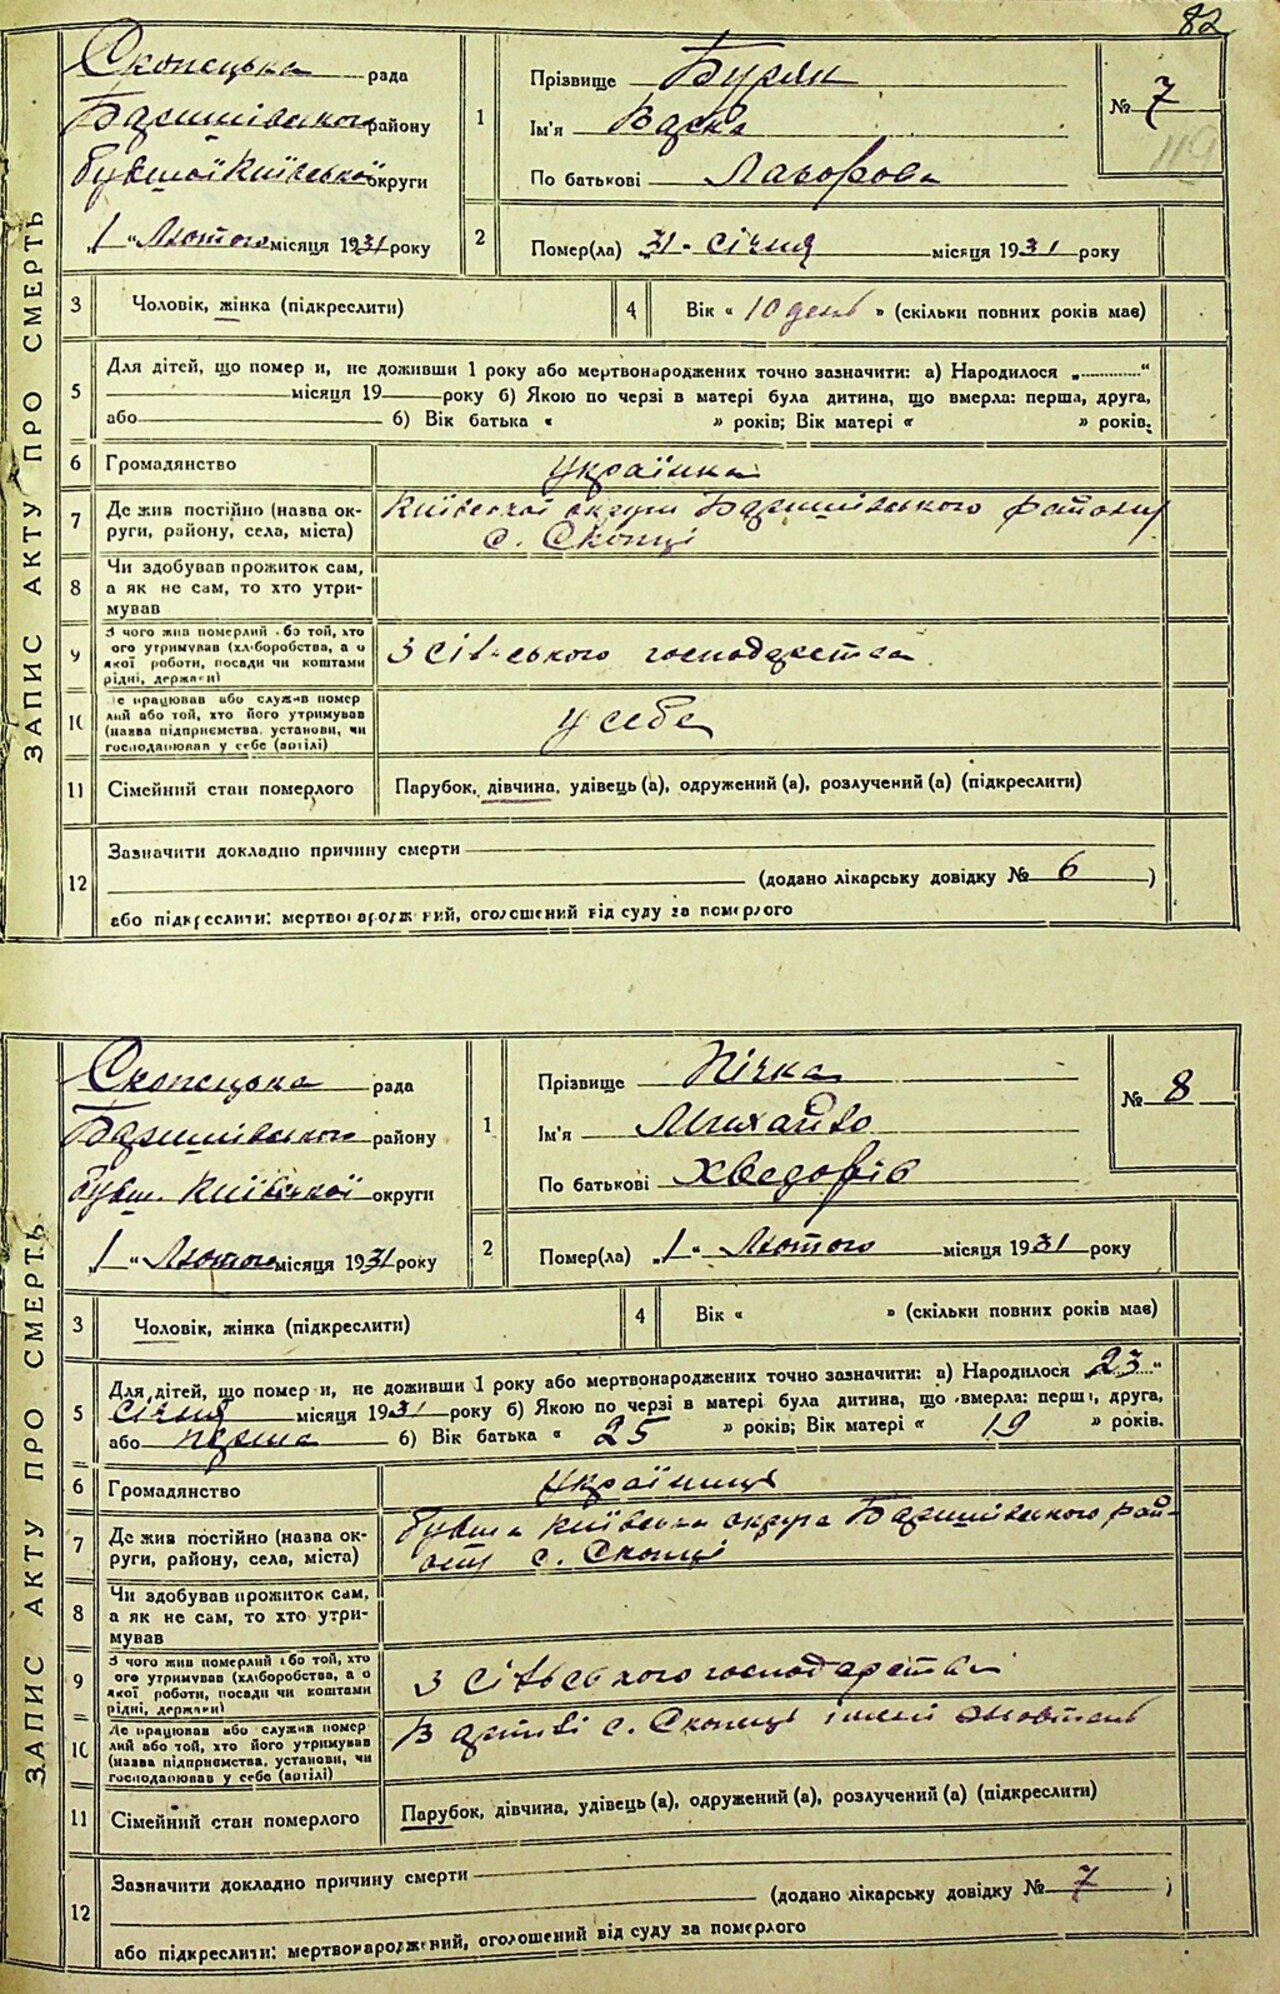 82
ЗАПИС АКТУ ПРО СМЕРТЬ
Скопецька рада
Баришівського району
бувшої Київської округи
„1“ Лютого місяця 1931 року
1
Прізвище Буряк
Ім'я
По батькові Лазорова
№ 7
119
2
Помер(ла) „31“ січня місяця 1931 року
3
Чоловік, жінка (підкреслити)
4
Вік « 10 день » (скільки повних років має)
5
Для дітей, що померли, не доживши 1 року або мертвонароджених точно зазначити: а) Народилося „ “
місяця 19 року б) Якою по черзі в матері була дитина, що вмерла: перша, друга,
або б) Вік батька « » років; Вік матері « » років.
6
Громадянство
українка
7
Де жив постійно (назва ок-
руги, району, села, міста)
Київської округи Баришівського району
с. Скопці
8
Чи здобував прожиток сам,
а як не сам, то хто утри-
мував
9
З чого жив померлий або той, хто
його утримував (хліборобства, а о
якої роботи, посади чи коштами
рідні, держави)
З сільського господарства
10
Де працював або служив помер
лий або той, хто його утримував
(назва підприємства, установи, чи
господарював у себе (артілі)
у себе
11
Сімейний стан померлого
Парубок, дівчина, удівець (а), одружений (а), розлучений (а) (підкреслити)
12
Зазначити докладно причину смерти
(додано лікарську довідку № 6 )
або підкреслити: мертвонароджений, оголошений від суду за померлого
ЗАПИС АКТУ ПРО СМЕРТЬ
Скопецька рада
Баришівського району
бувш. Київської округи
„1“ Лютого місяця 1931 року
1
Прізвище Пічка
Ім'я Михайло
По батькові Хведорів
№ 8
2
Помер(ла) „1“ Лютого місяця 1931 року
3
Чоловік, жінка (підкреслити)
4
Вік « » (скільки повних років має)
5
Для дітей, що померли, не доживши 1 року або мертвонароджених точно зазначити: а) Народилося 23“
січня місяця 1931 року б) Якою по черзі в матері була дитина, що вмерла: перша, друга,
або перша б) Вік батька « 25 » років; Вік матері « 19 » років.
6
Громадянство
українці
7
Де жив постійно (назва ок-
руги, району, села, міста)
бувша Київська округа Баришівського рай-
ону с. Скопці
8
Чи здобував прожиток сам,
а як не сам, то хто утри-
мував
9
З чого жив померлий або той, хто
його утримував (хліборобства, а о
якої роботи, посади чи коштами
рідні, держави)
З сільського господарства
10
Де працював або служив помер
лий або той, хто його утримував
(назва підприємства, установи, чи
господарював у себе (артілі)
В артілі с. Скопці імені Жовтень
11
Сімейний стан померлого
Парубок, дівчина, удівець (а), одружений (а), розлучений (а) (підкреслити)
12
Зазначити докладно причину смерти
(додано лікарську довідку № 7 )
або підкреслити: мертвонароджений, оголошений від суду за померлого